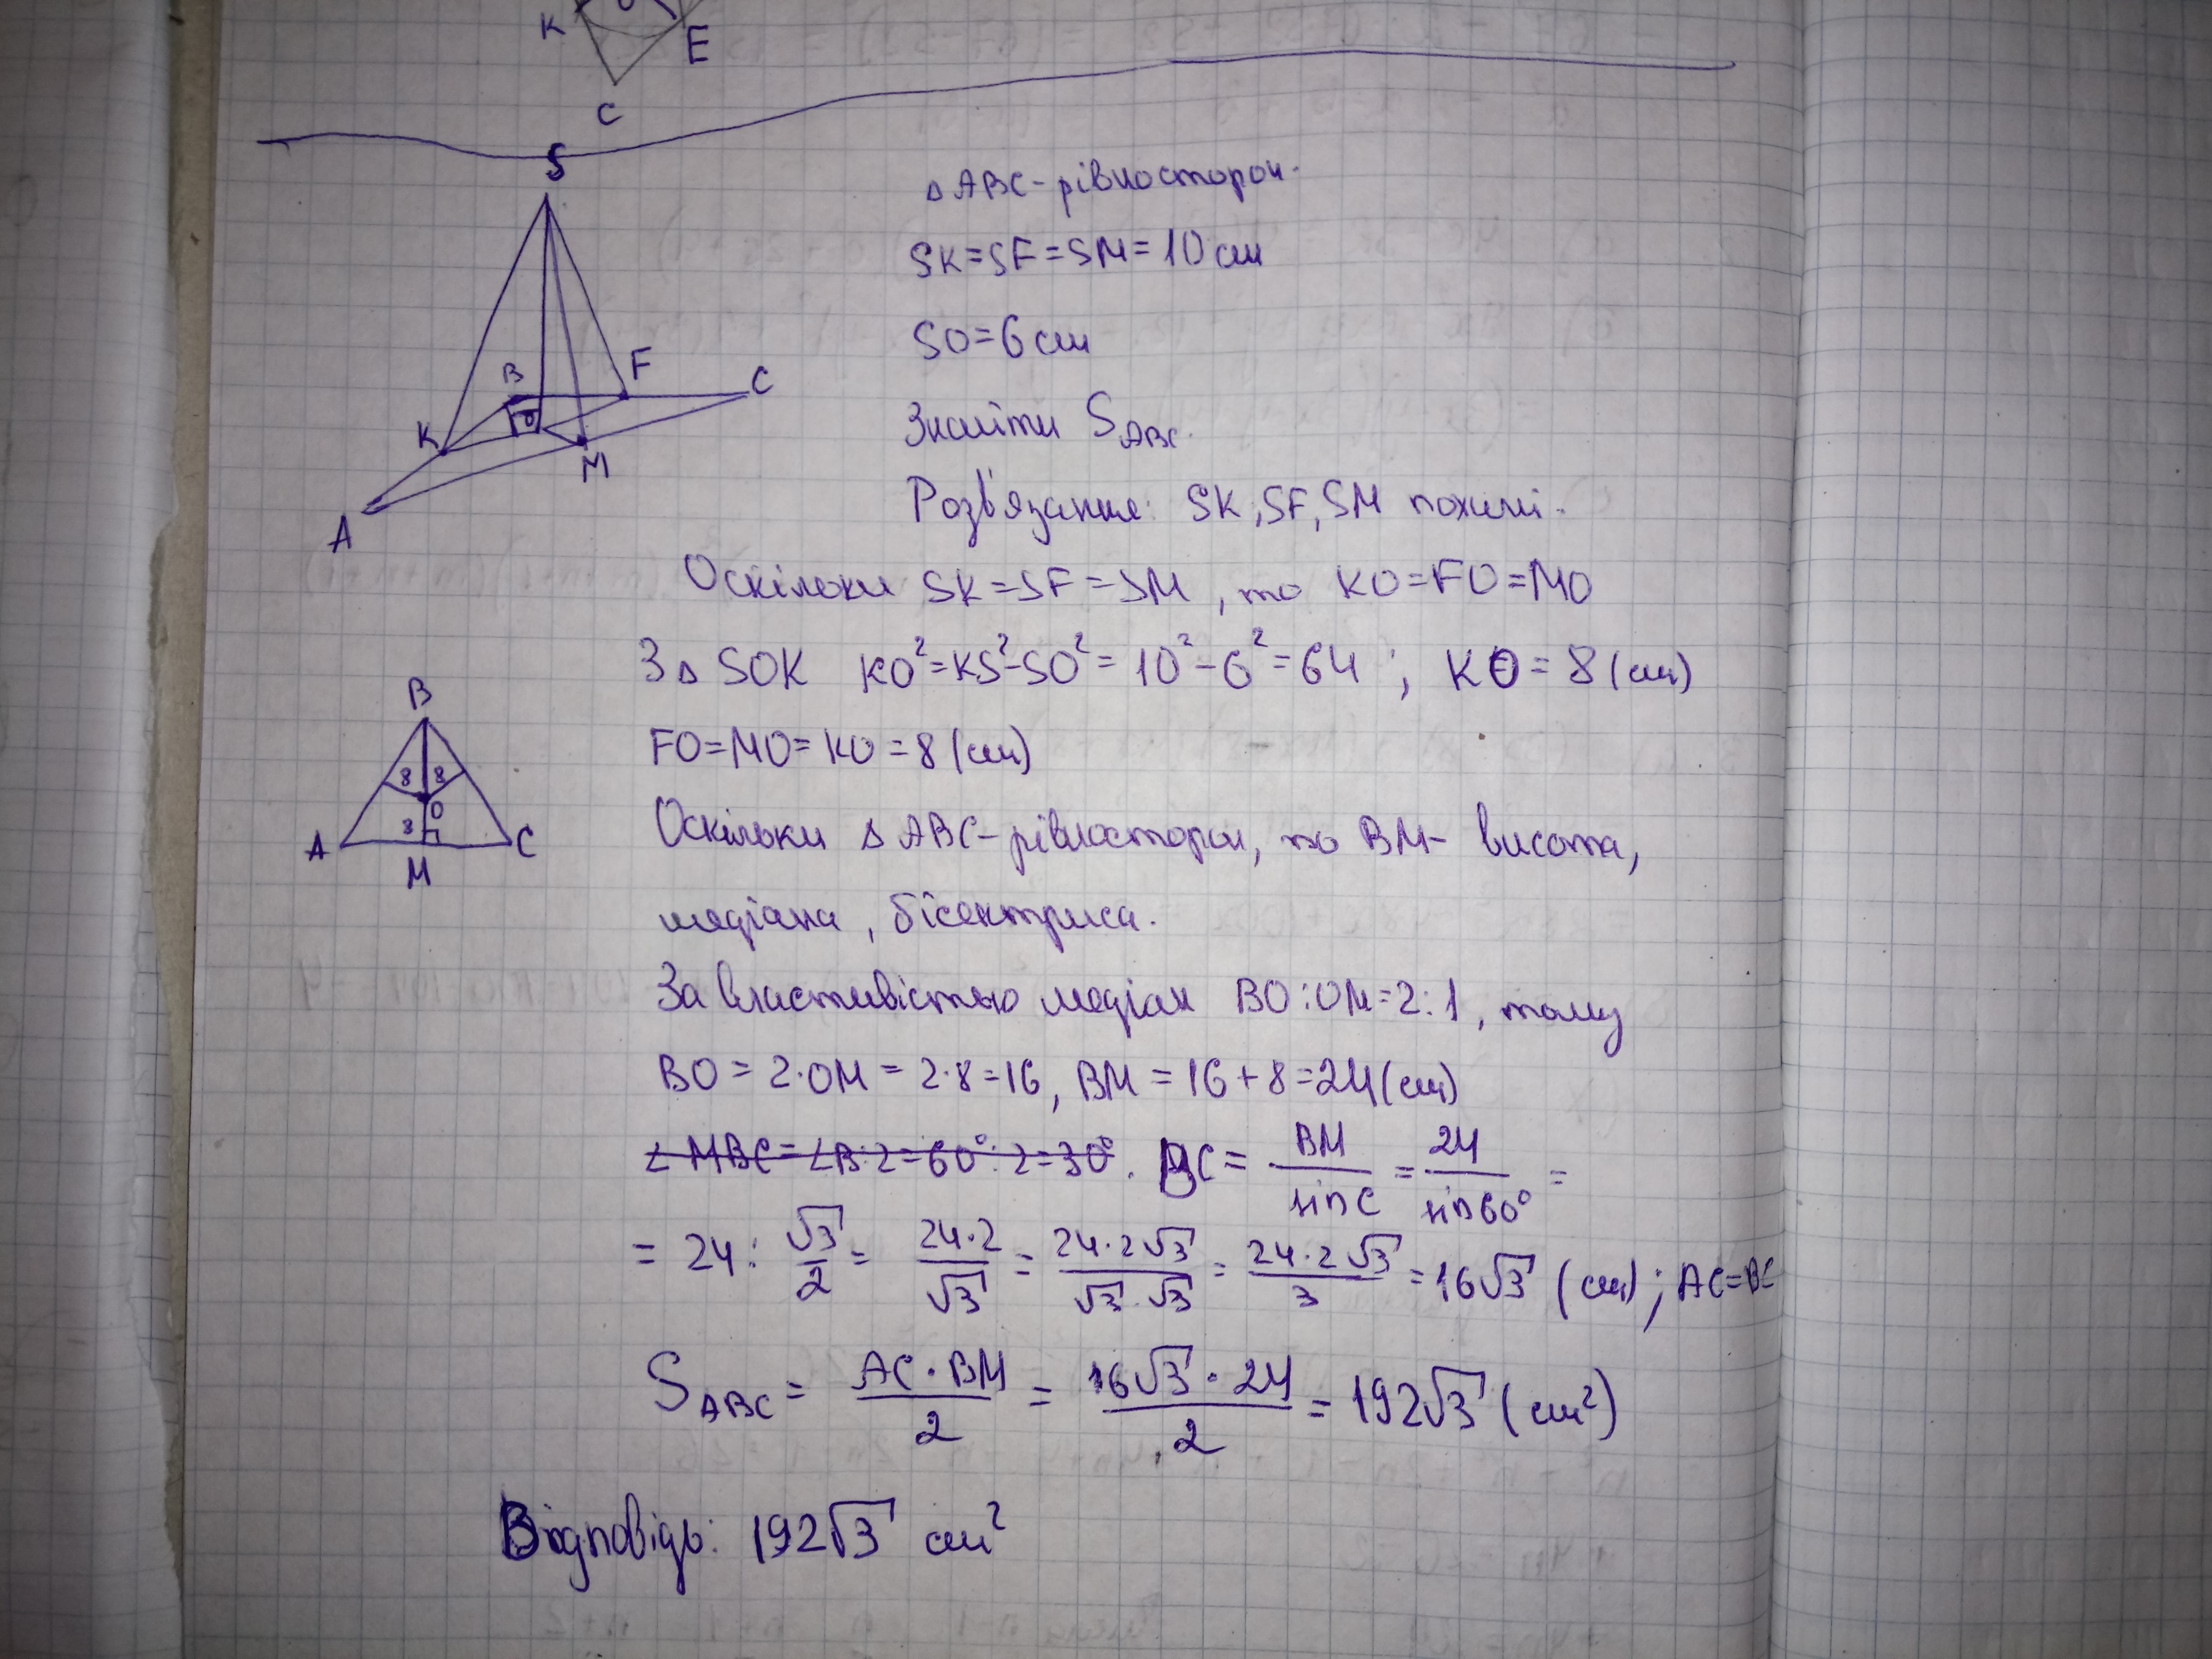 K
E
C
S
B
F
C
O
K
M
A
△ABC-рівносторон.
SK=SF=SM=10см
SO=6см
Знайти S△ABC.
Розв'язання: SK, SF, SM похилі.
Оскільки SK=SF=SM, то KO=FO=MO
З△ SOK KO²=KS²-SO²=10²-6²=64; KO=8(см)
FO=MO=KO=8(см)
B
8 8
O
8
A
C
M
Оскільки △ABC-рівносторон, то BM- висота,
медіана, бісектриса.
За властивістю медіан BO:OM=2:1, тому
BO=2·OM=2·8=16, BM=16+8=24(см)
∠MBC=∠B:2=60°:2=30°. BC = BM/sinC = 24/sin60° =
= 24: √3/2 = 24·2/√3 = 24·2√3/√3·√3 = 24·2√3/3 = 16√3 (см); AC=BC
S△ABC = AC·BM/2 = 16√3·24/2 = 192√3 (см²)
Відповідь: 192√3 см²